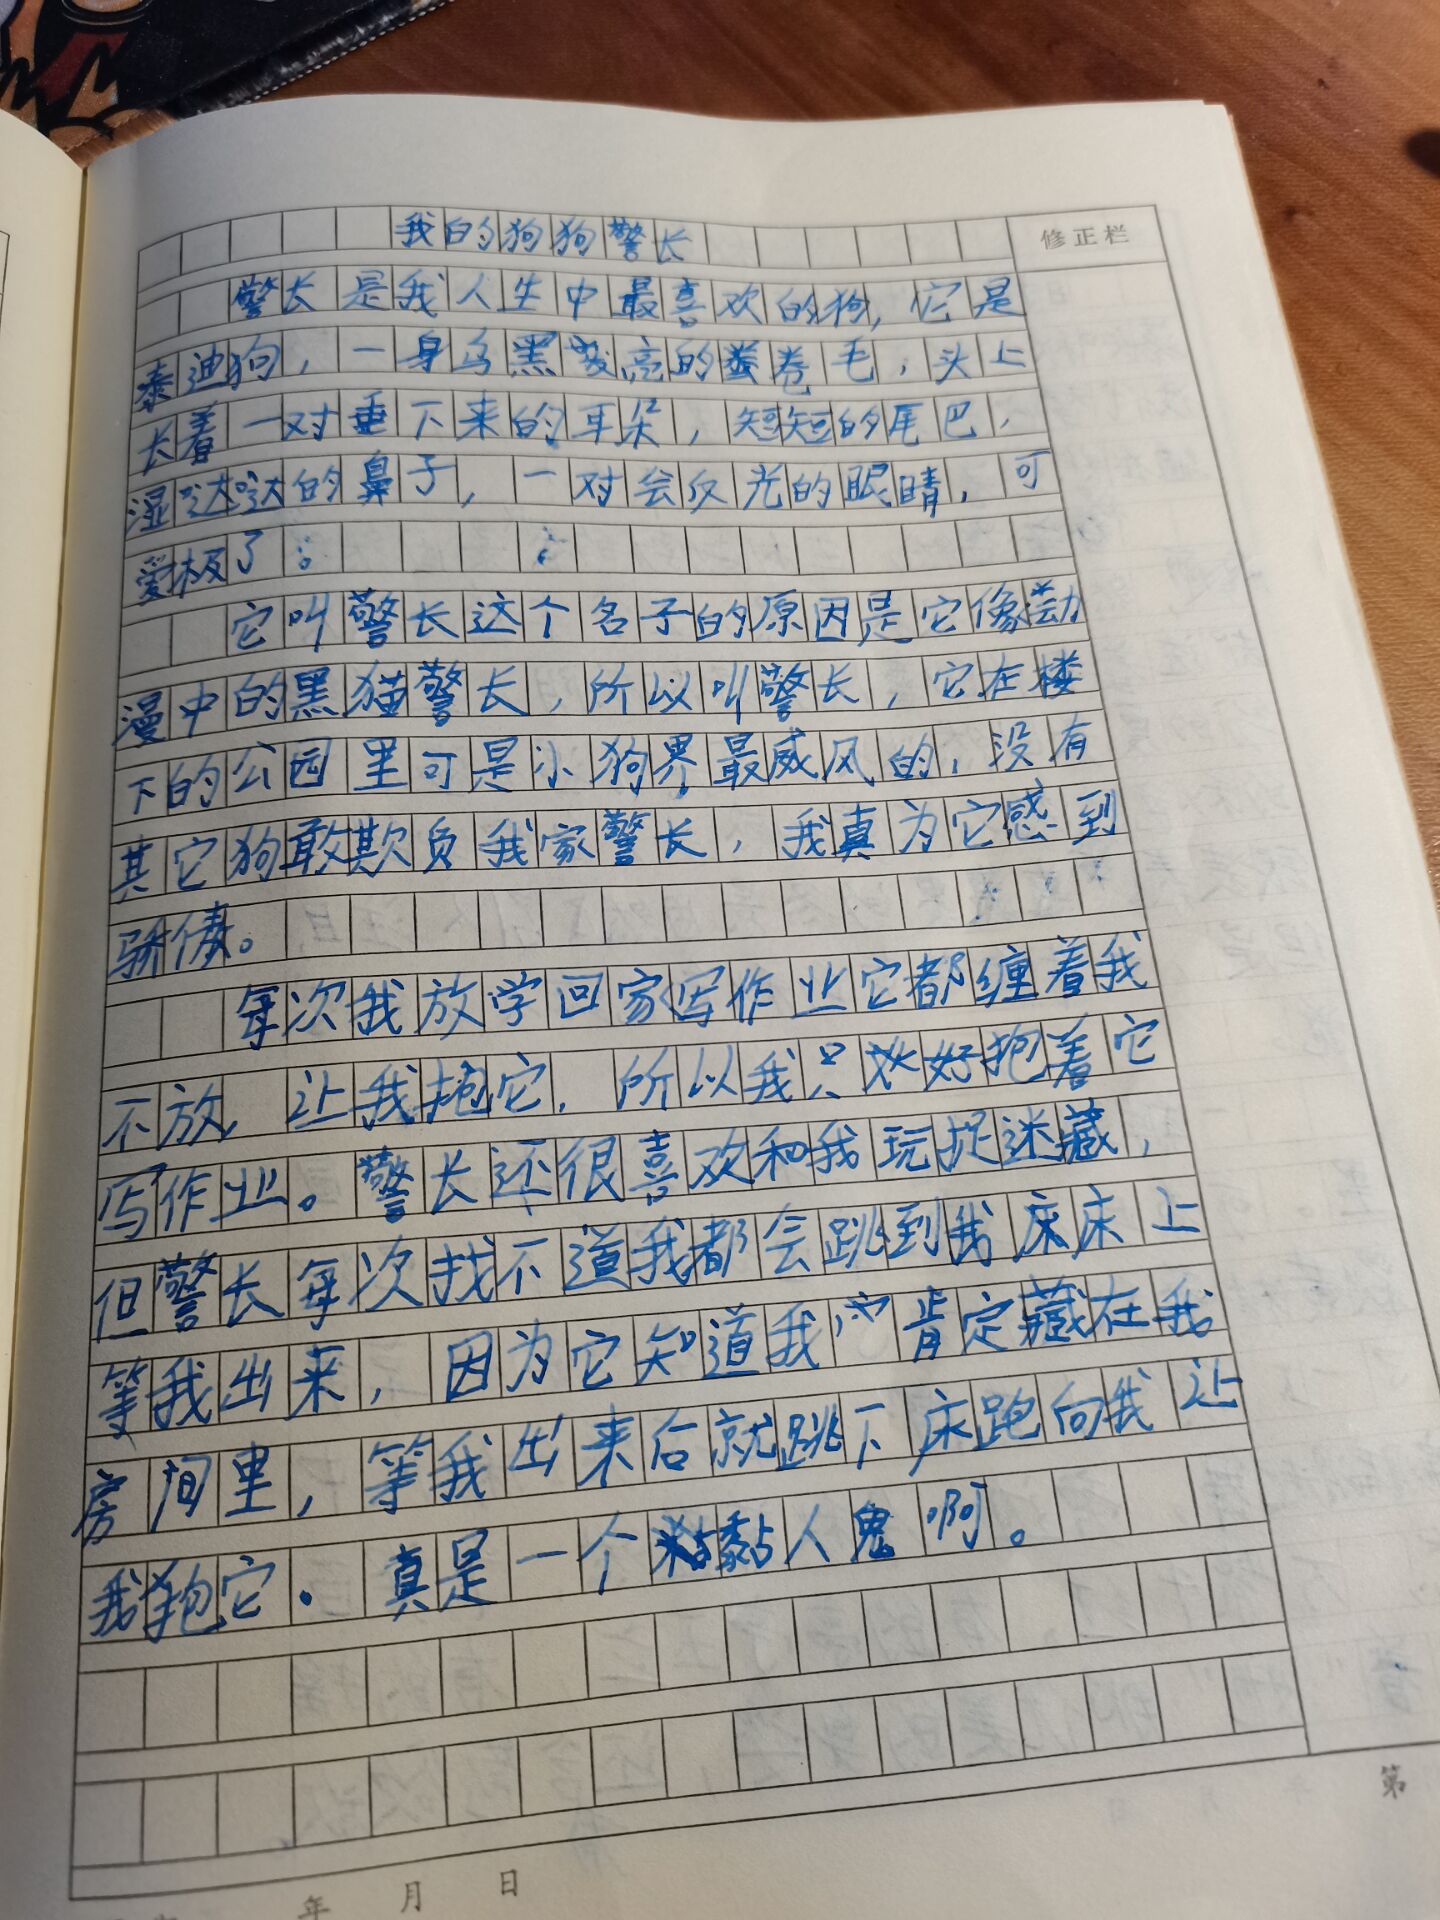 我的狗狗警长
修正栏
警长是我人生中最喜欢的狗，它是
泰迪狗，一身乌黑发亮的卷毛，头上
长着一对垂下来的耳朵，短短的尾巴，
湿哒哒的鼻子，一对会反光的眼睛，可
爱极了。
它叫警长这个名子的原因是它像动
漫中的黑猫警长，所以叫警长，它在楼
下的公园里可是小狗界最威风的，没有
其它狗敢欺负我家警长，我真为它感到
骄傲。
每次我放学回家写作业它都缠着我
不放，让我抱它，所以我只好抱着它
写作业。警长还很喜欢和我玩捉迷藏，
但警长每次找不道我都会跳到我床床上
等我出来，因为它知道我肯定藏在我
房间里，等我出来后就跳下床跑向我让
我抱它。真是一个黏人鬼啊。
年 月 日
第